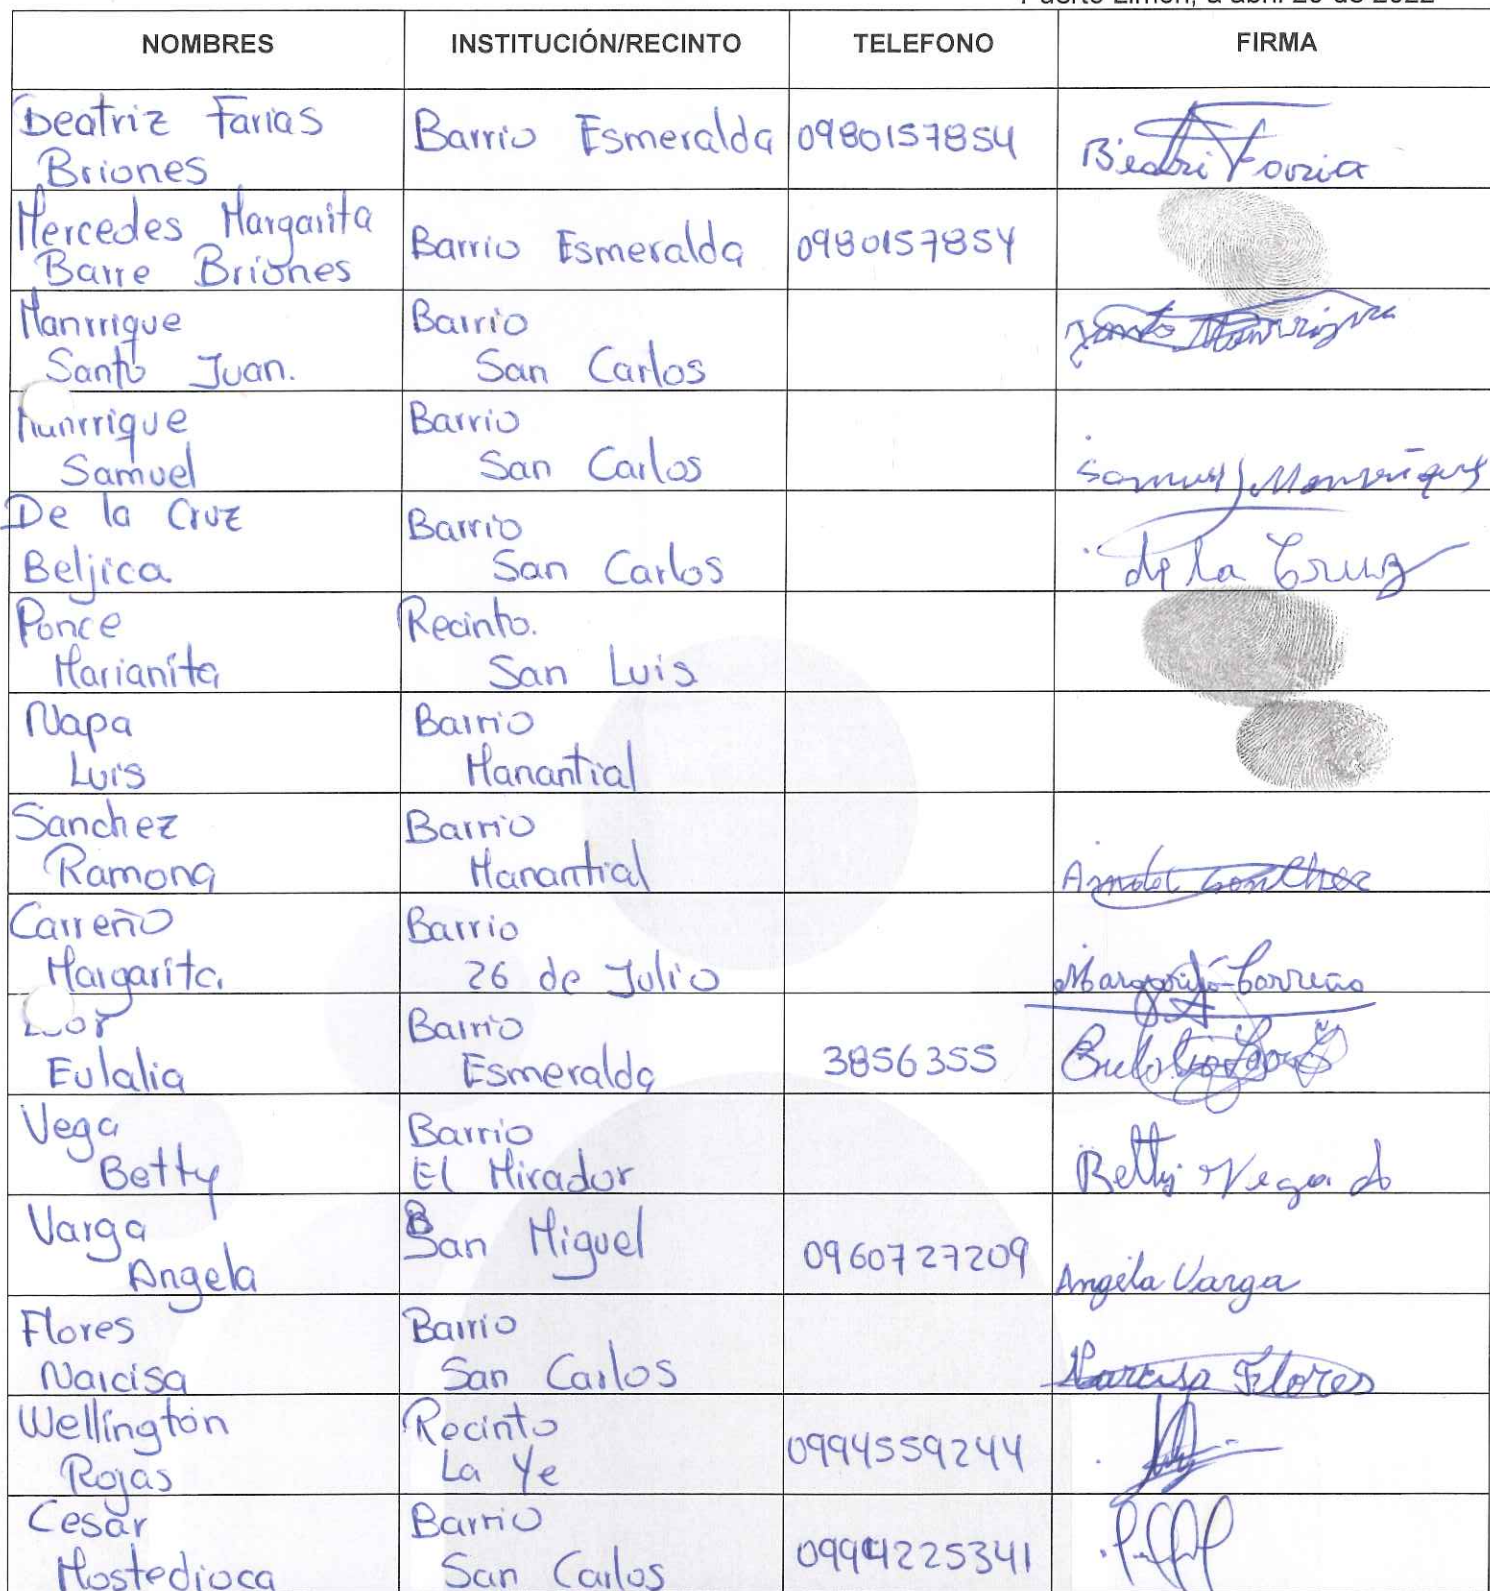 NOMBRES INSTITUCIÓN/RECINTO TELEFONO FIRMA
Beatriz Farias
Briones
Barrio Esmeralda 0980157854
Mercedes Margarita
Barre Briones
Barrio Esmeralda 0980157854
Manrrique
Santo Juan.
Barrio
San Carlos
Santo Manrrique
Manrrique
Samuel
Barrio
San Carlos
Samuel Manrrique
De la Cruz
Beljica
Barrio
San Carlos
de la Cruz
Ponce
Marianita
Recinto.
San Luis
Napa
Luis
Barrio
Manantial
Sanchez
Ramona
Barrio
Manantial
Carreño
Margarita
Barrio
26 de Julio
Margarita Carreño
Eulalia
Barrio
Esmeralda
3856355
Vega
Betty
Barrio
El Mirador
Betty Vega
Varga
Angela
San Miguel
0960727209
Angela Varga
Flores
Narcisa
Barrio
San Carlos
Narcisa Flores
Wellington
Rojas
Recinto
La Ye
0994559244
Cesar
Mostedioca
Barrio
San Carlos
0994225341